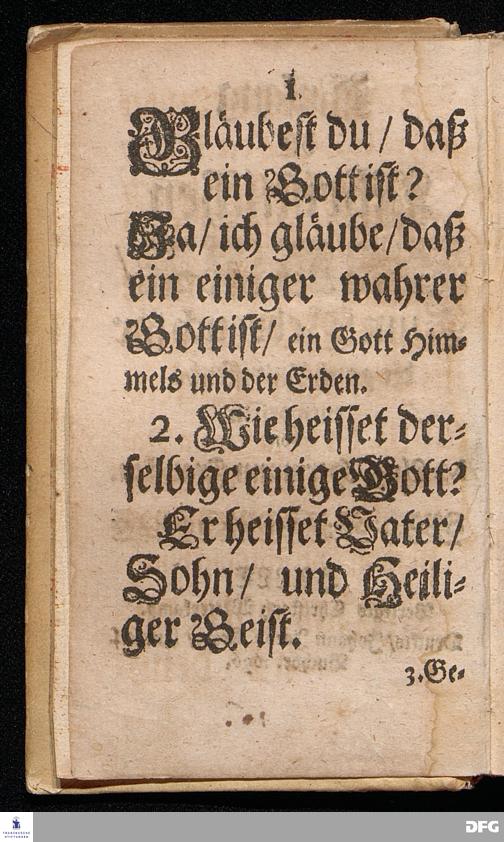 1.
Gläubest du / daß
ein Gott ist?
Ja/ ich gläube/daß
ein einiger wahrer
Gott ist/ ein Gott Him-
mels und der Erden.
2. Wie heisset der-
selbige einige Gott?
Er heisset Vater/
Sohn/ und Heili-
ger Geist.
3. Ge-
DFG